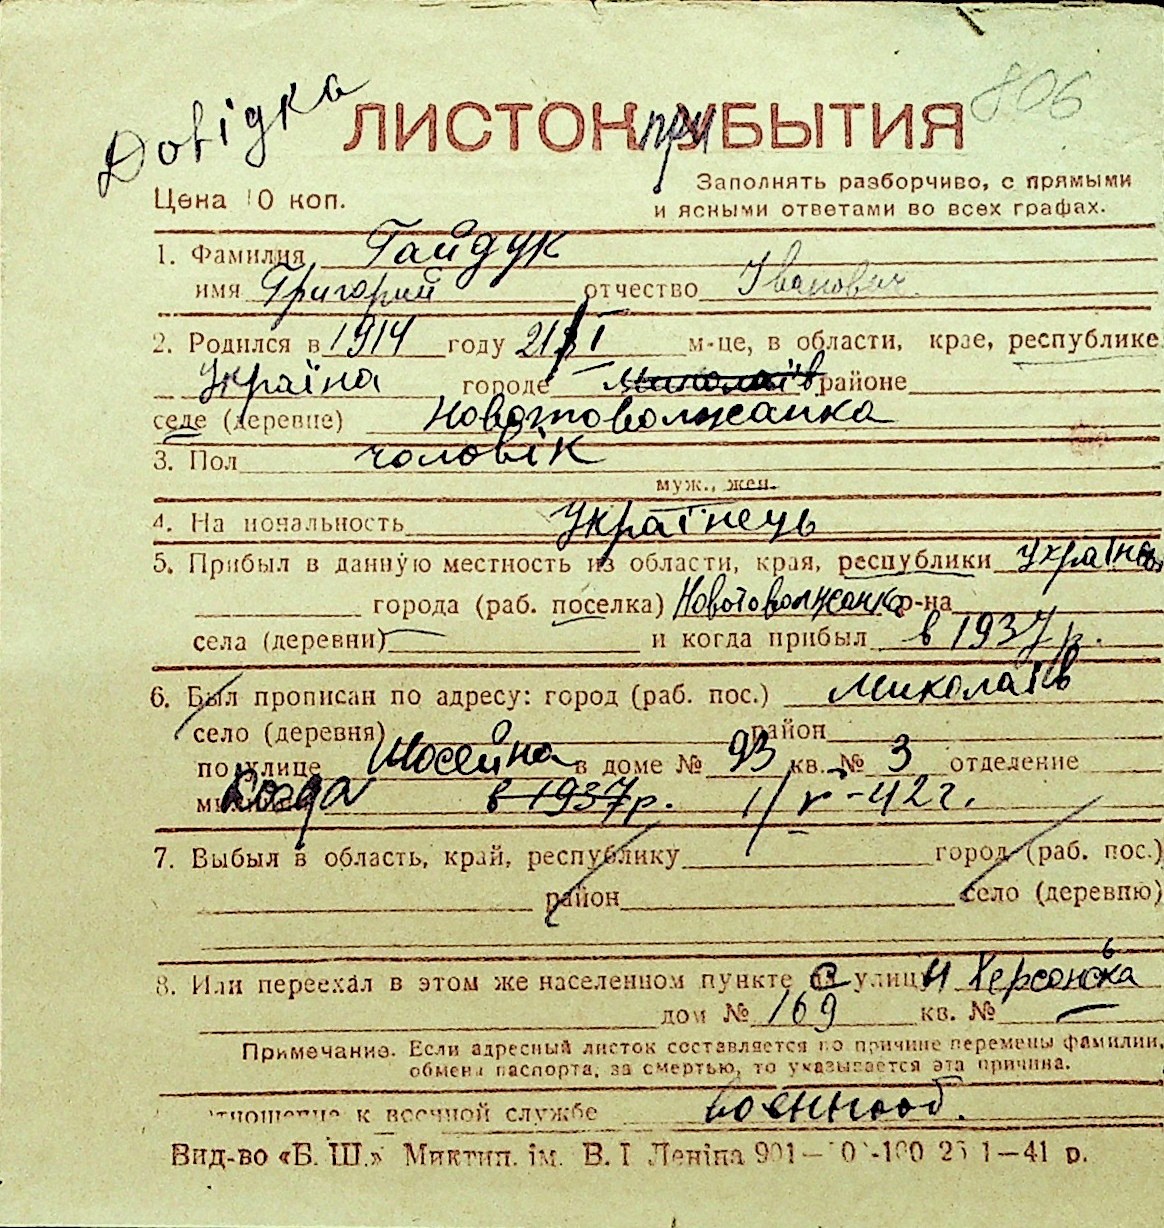 Довідка
806
ЛИСТОК при УБЫТИЯ
Цена 10 коп.
Заполнять разборчиво, с прямыми
и ясными ответами во всех графах.
1. Фамилия Гайдук
имя Григорий отчество Іванович
2. Родился в 1914 году 21 I м-це, в области, крае, республике
Україна городе Миколаїв районе
селе (деревне) Новотоволжанка
3. Пол чоловік
муж., жен.
4. Национальность Українець
5. Прибыл в данную местность из области, края, республики Україна
города (раб. поселка) Новотоволжанка р-на
села (деревни) и когда прибыл в 1937 р.
6. Был прописан по адресу: город (раб. пос.) Миколаїв
село (деревня) район
по улице Шосейна в доме № 93 кв. № 3 отделение
Когда в 1937 р. 1/V-42 г.
7. Выбыл в область, край, республику город (раб. пос.)
район село (деревню)
8. Или переехал в этом же населенном пункте с улицы Херсонська
дом № 169 кв. № —
Примечание. Если адресный листок составляется по причине перемены фамилии,
обмена паспорта, за смертью, то указывается эта причина.
отношение к военной службе военнооб.
Вид-во «Б. Ш.» Миктип. ім. В. І Леніна 901— 25 1—41 р.